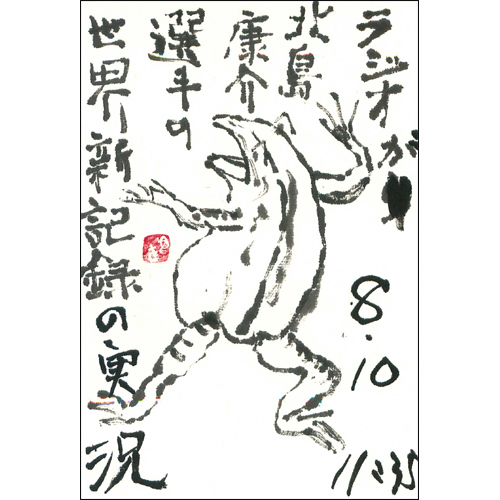 ラジオが
北島
康介
選手の
世界新記録の実況
8.10
11:35